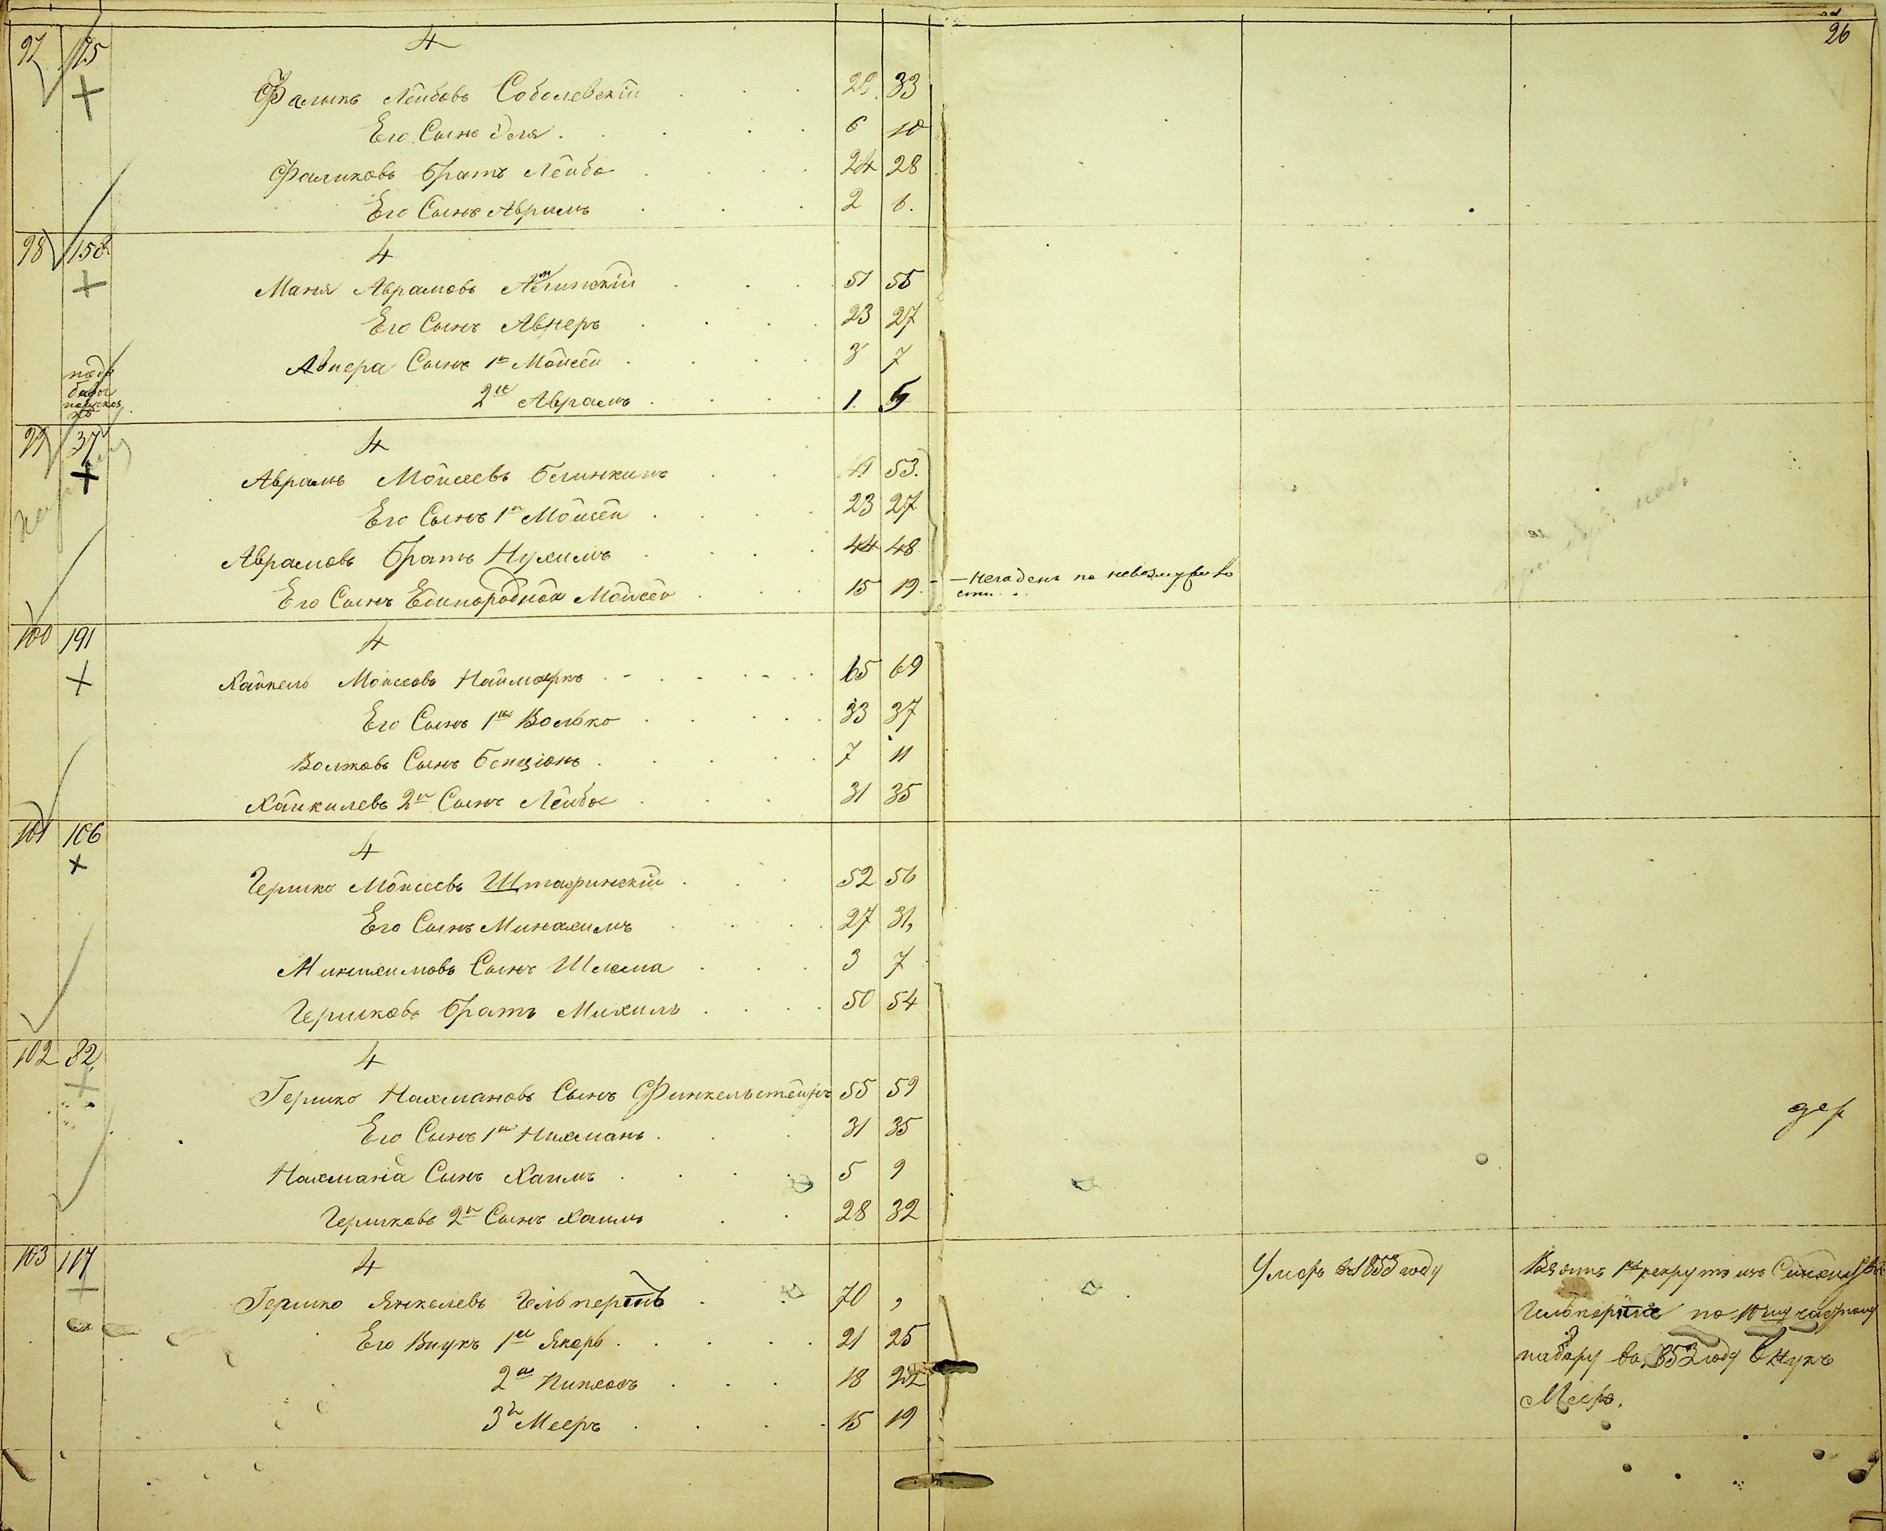 26
97 175 4
Фалькъ Лейбовъ Соболевскій 29 33
Его Сынъ 6 10
Фалковъ братъ Лейба 24 28
Его Сынъ Абрамъ 2 6.
98 158 4
Маня Абрамовъ 51 55
Его Сынъ Авнеръ 23 27
Авнера Сынъ 1й Мойсей 3 7
2й Абрамъ 1. 5
99 37 4
Абрамъ Мойсеевъ Белинкинъ 49 53.
Его Сынъ 1й Мойсей 23 27
Абрамовъ братъ Нухимъ 44 48
Его Сынъ Единородный Мойсей 15 19. – негоденъ по невозмужало
сти
100 191 4
Хайкель Мойсеевъ Наймаркъ 65 69
Его Сынъ 1й Волько 33 37
Волковъ Сынъ Бенціонъ 7 11
Хайкилевъ 2й Сынъ Лейба 31 35
101 106 4
Гершко Мойсеевъ Штафинскій 52 56
Его Сынъ Минахимъ 27 31,
Минихимовъ Сынъ Шлема 3 7
Гершковъ братъ Михиль 50 54
102 82 4
Гершко Нахмановъ Сынъ Финкельштейнъ 55 59
Его Сынъ 1й Нахманъ 31 35
Нахмана Сынъ Хаимъ 5 9
Гершковъ 2й Сынъ Хаимъ 28 32
103 117 4
Гершко Янкелевъ Гельперинъ 70 , Умеръ в 1853 году
Его Внукъ 1й 21 25
2й Пинхосъ 18 22
3й Мееръ 15 19
Взятъ рекрутъ изъ Семейства
Гельперина по 10му частному
набору въ 1853 году внукъ
Мееръ.